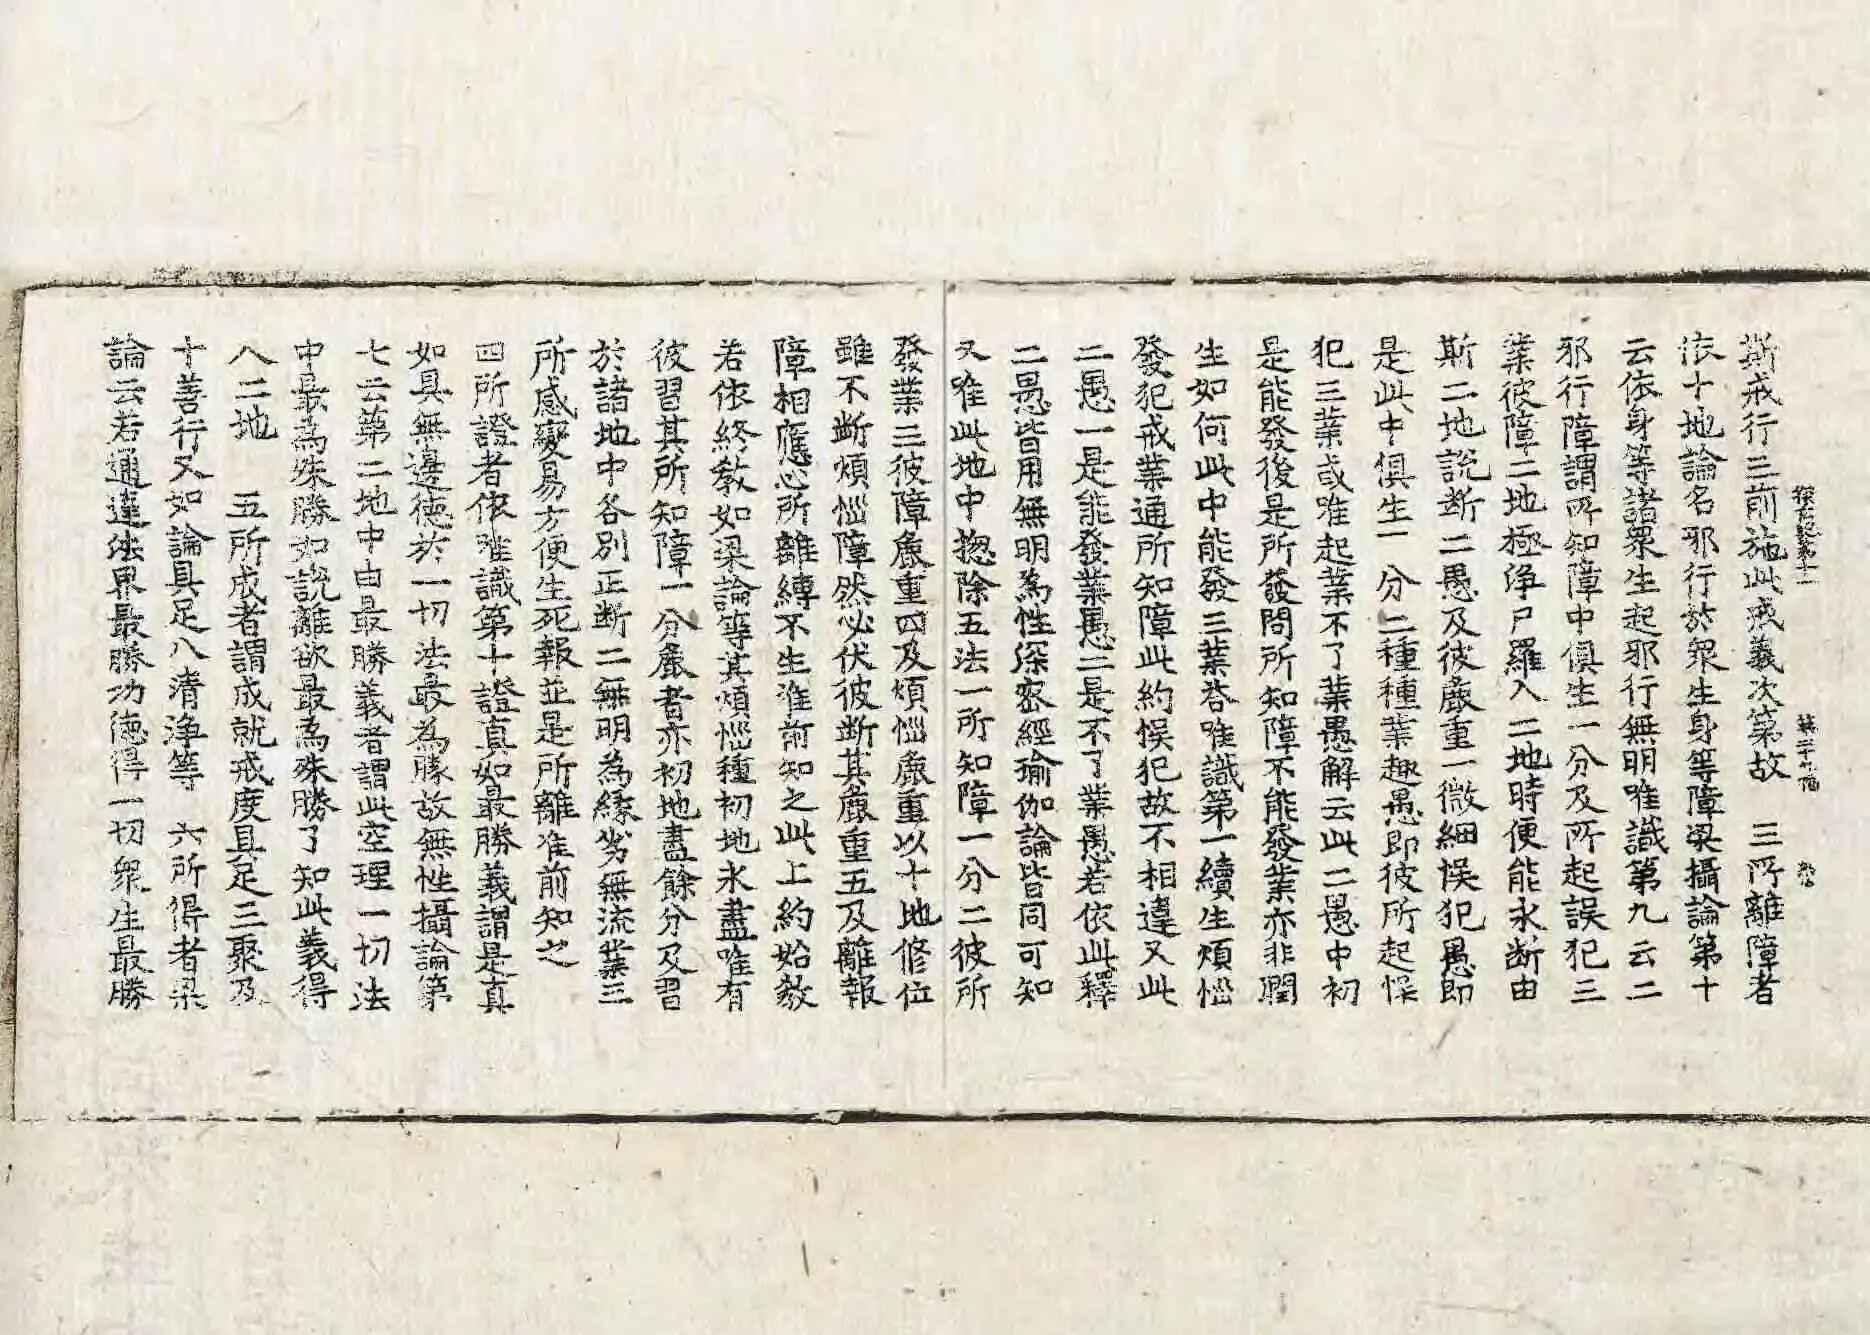 探玄記卷十一 第二十九幅
斯戒行三前施此戒義次第故 三所離障者
依十地論名邪行於衆生身等障梁攝論第十
云依身等諸衆生起邪行無明唯識第九云二
邪行障謂所知障中俱生一分及所起誤犯三
業彼障二地極淨尸羅入二地時便能永断由
斯二地說断二愚及彼麁重一微細悞犯愚即
是此中俱生一分二種種業趣愚即彼所起悮
犯三業或唯起業不了業愚解云此二愚中初
是能發後是所發問所知障不能發業亦非潤
生如何此中能發三業荅唯識第一續生煩惱
發犯戒業通所知障此約悞犯故不相違又此
二愚一是能發業愚二是不了業愚若依此釋
二愚皆用無明為性深密經瑜伽論皆同可知
又唯此地中揔除五法一所知障一分二彼所
發業三彼障麁重四及煩惱麁重以十地修位
雖不断煩惱障然必伏彼断其麁重五及離報
障相應心所離縛不生准前知之此上約始敎
若依終敎如梁論等其煩惱種初地永盡唯有
彼習其所知障一分麁者亦初地盡餘分及習
於諸地中各別正断二無明為緣劣無流業三
所感變易方便生死報並是所離准前知之
四所證者依唯識第十證真如最勝義謂是真
如具無邊德於一切法最為勝故無性攝論第
七云第二地中由最勝義者謂此空理一切法
中最為殊勝如說離欲最為殊勝了知此義得
入二地 五所成者謂成就戒度具足三聚及
十善行又如論具足八清淨等 六所得者梁
論云若通達法界最勝功德得一切衆生最勝